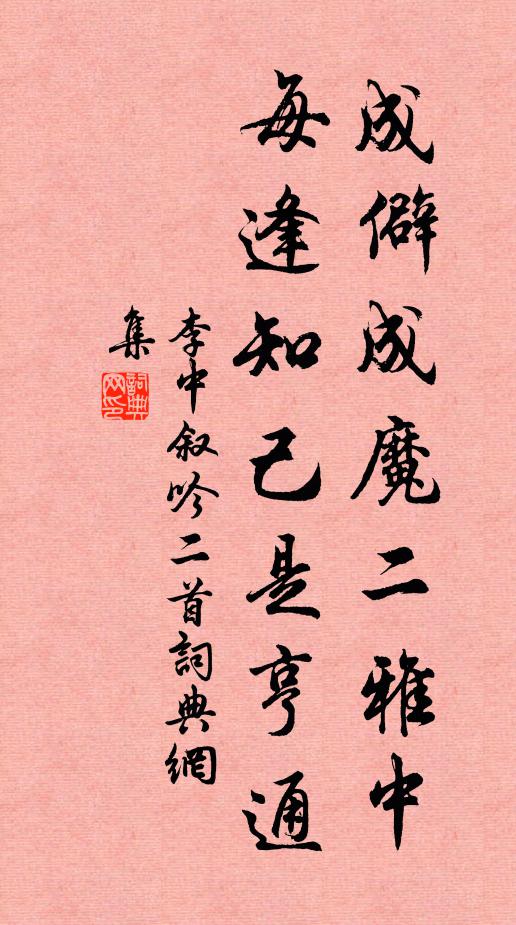 成僻成魔二雅中
每逢知己是亨通
李中叙吟二首詞典網
集
詞典
网印